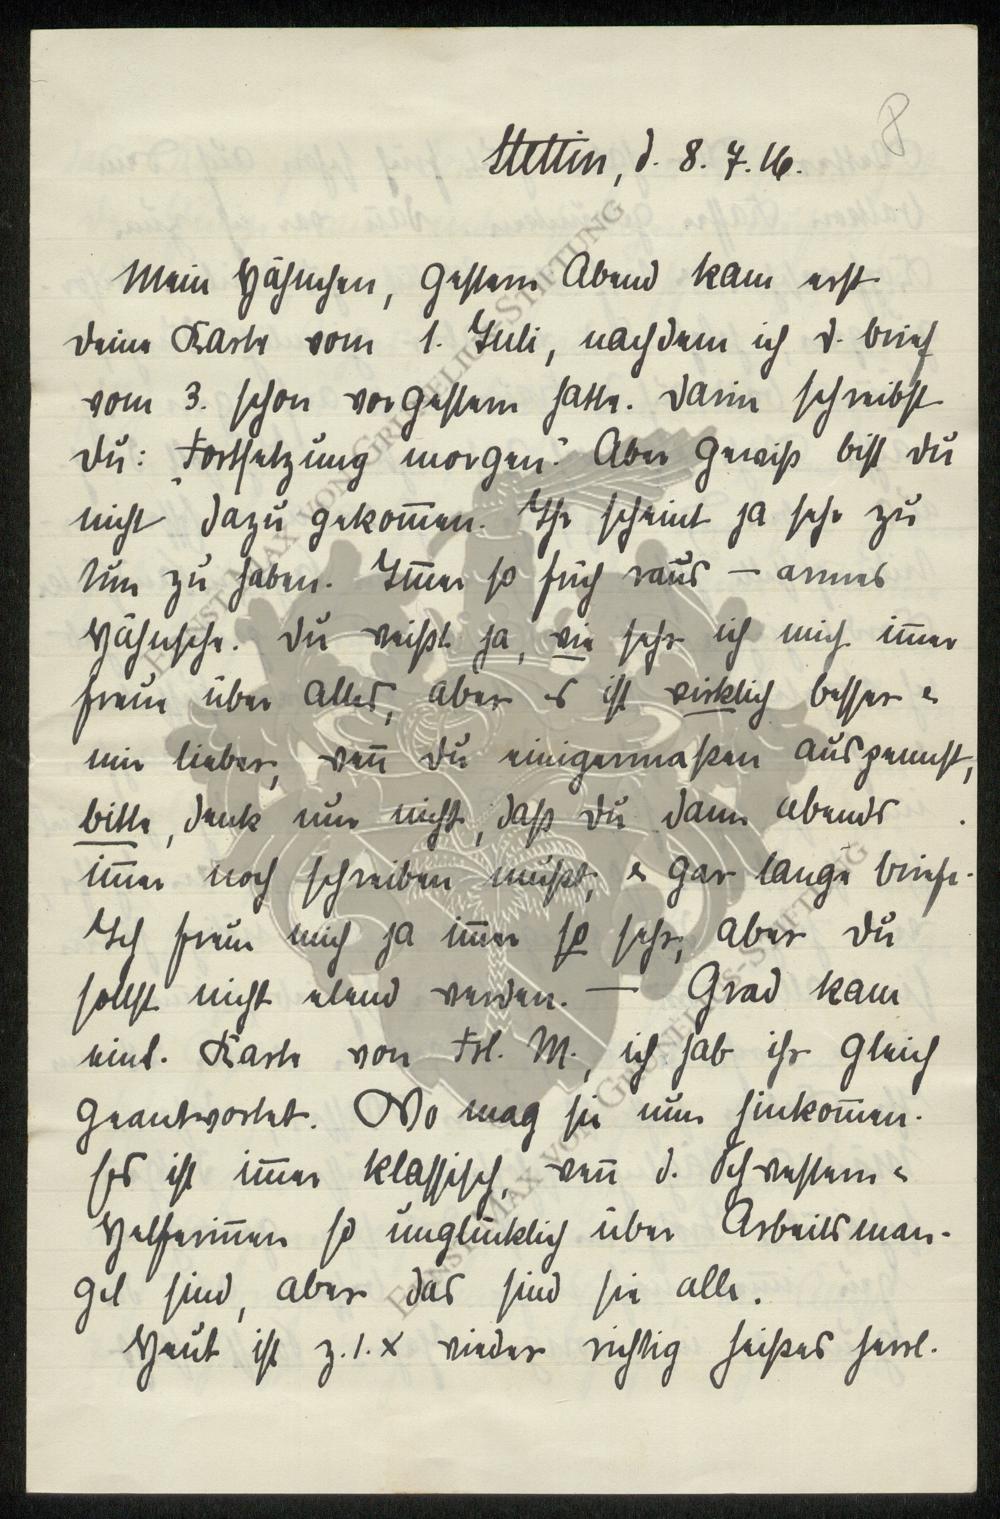 8
Stettin, d. 8. 7. 16.
Mein Hähnchen, gestern Abend kam erst
deine Karte vom 1. Juli, nachdem ich d. brief
vom 3. schon vorgestern hatte. Darin schreibst
du: „Fortsetzung morgen." Aber gewiß bist du
nicht dazu gekom̄en. Ihr scheint ja sehr zu
tun zu haben. Im̄er so früh raus – armes
Hähnsche. Du weißt ja, wie sehr ich mich im̄er
freue über alles, aber es ist wirklich besser u
mir lieber, wen̄ du einigermaßen auspennst,
bitte, denk nur nicht, daß du dann abends
im̄er noch schreiben mußt, u gar lange briefe.
Ich freue mich ja im̄er so sehr, aber du
sollst nicht elend werden. — Grad kam
eine Karte von Frl. M., ich hab ihr gleich
geantwortet. Wo mag sie nun hinkom̄en.
Es ist im̄er klassisch, wen̄ d. Schwestern u
Helferin̄en so unglücklich über Arbeitsman-
gel sind, aber das sind sie alle.
Heut ist z. 1. x wieder richtig heißes herrl.
ERNST MAX VON GRUNELIUS-STIFTUNG
ERNST MAX VON GRUNELIUS-STIFTUNG